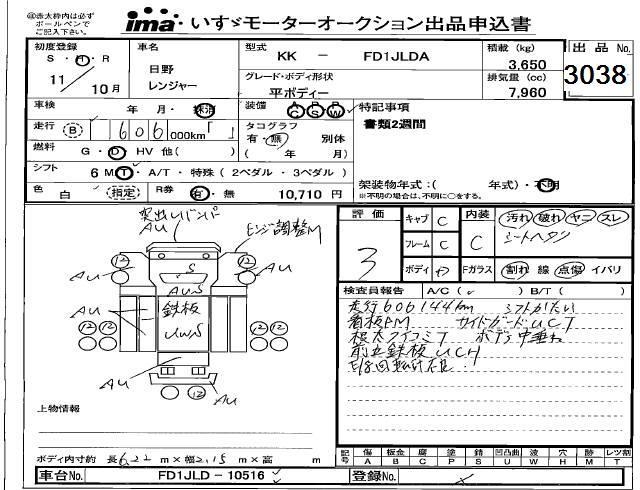 ㊟赤太枠内は必ず
ボールペンで
ご記入下さい。
ima いすゞモーターオークション出品申込書
初度登録
S・H・R
11年10月
車名
日野
レンジャー
型式
KK － FD1JLDA
グレード・ボディ形状
平ボディー
積載 (kg)
3,650
排気量 (cc)
7,960
出品 No.
3038
車検
年 月・抹消
装備
A C P S P W
特記事項
書類2週間
走行 B 606,000km
タコグラフ
有・無 別体
( 年 月)
燃料 G・D・HV 他( )
シフト 6 MT・A/T・特殊 (2ペダル・3ペダル)
架装物年式:( 年式)・不明
※不明の場合は、不明に○をする。
色 白 (指定)
R券 有・無 10,710 円
評価
3
キャブ C
フレーム C
ボディ
内装 C
汚れ 破れ ヤニ スレ
シートヘタリ
Fガラス 割れ 線 点傷 イバリ
突出しバンパ
AU
ヒンジ調整M
12 12
AU AU
S
AUS
鉄板
UWS
AU
12 12 12 12
AU AU
検査員報告 A/C( ) B/T( )
走行606144km シフトかたい
看板FM サイドガードUCT
根太クイコミT ボデー中重ね
前立鉄板UCH
上物情報
ボディ内寸約 長6.22 m×幅2.15 m×高 m
記号 傷 A 板金 B 腐 C 塗 P 錆 S 凹凸曲 U 波 W 穴 H 跡 M レツ割 T
車台No. FD1JLD－10516
登録No.